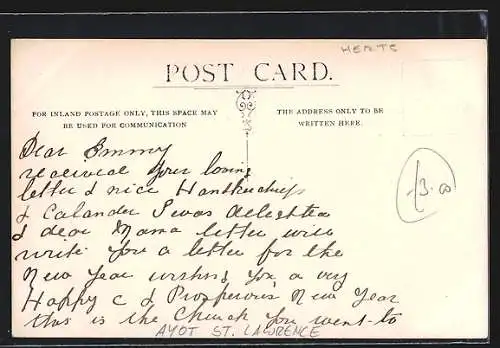 HERTS
POST CARD.
FOR INLAND POSTAGE ONLY, THIS SPACE MAY
BE USED FOR COMMUNICATION
THE ADDRESS ONLY TO BE
WRITTEN HERE.
Dear Emmy
received your loving
letter & nice Hankerchifs
& Calander I was delighted
& dear Mama letter will
write you a letter for the
New Year wishing you a very
Happy & Prosperous New Year
this is the Church you went to
AYOT ST. LAWRENCE
£3.00